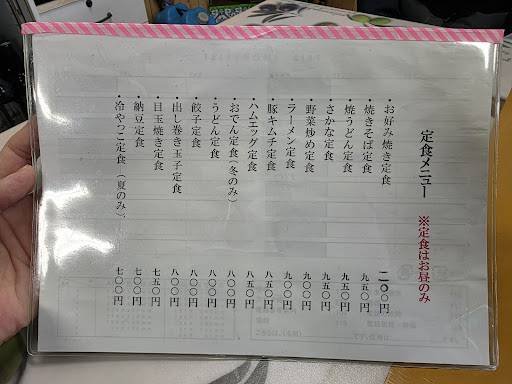 定食メニュー ※定食はお昼のみ
・お好み焼き定食 一一〇〇円
・焼きそば定食 九五〇円
・焼うどん定食 九五〇円
・さかな定食 九五〇円
・野菜炒め定食 九〇〇円
・ラーメン定食 九〇〇円
・豚キムチ定食 八五〇円
・ハムエッグ定食 八五〇円
・おでん定食(冬のみ) 八〇〇円
・うどん定食 八〇〇円
・餃子定食 八〇〇円
・出し巻き玉子定食 八〇〇円
・目玉焼き定食 七五〇円
・納豆定食 七〇〇円
・冷やっこ定食(夏のみ) 七〇〇円